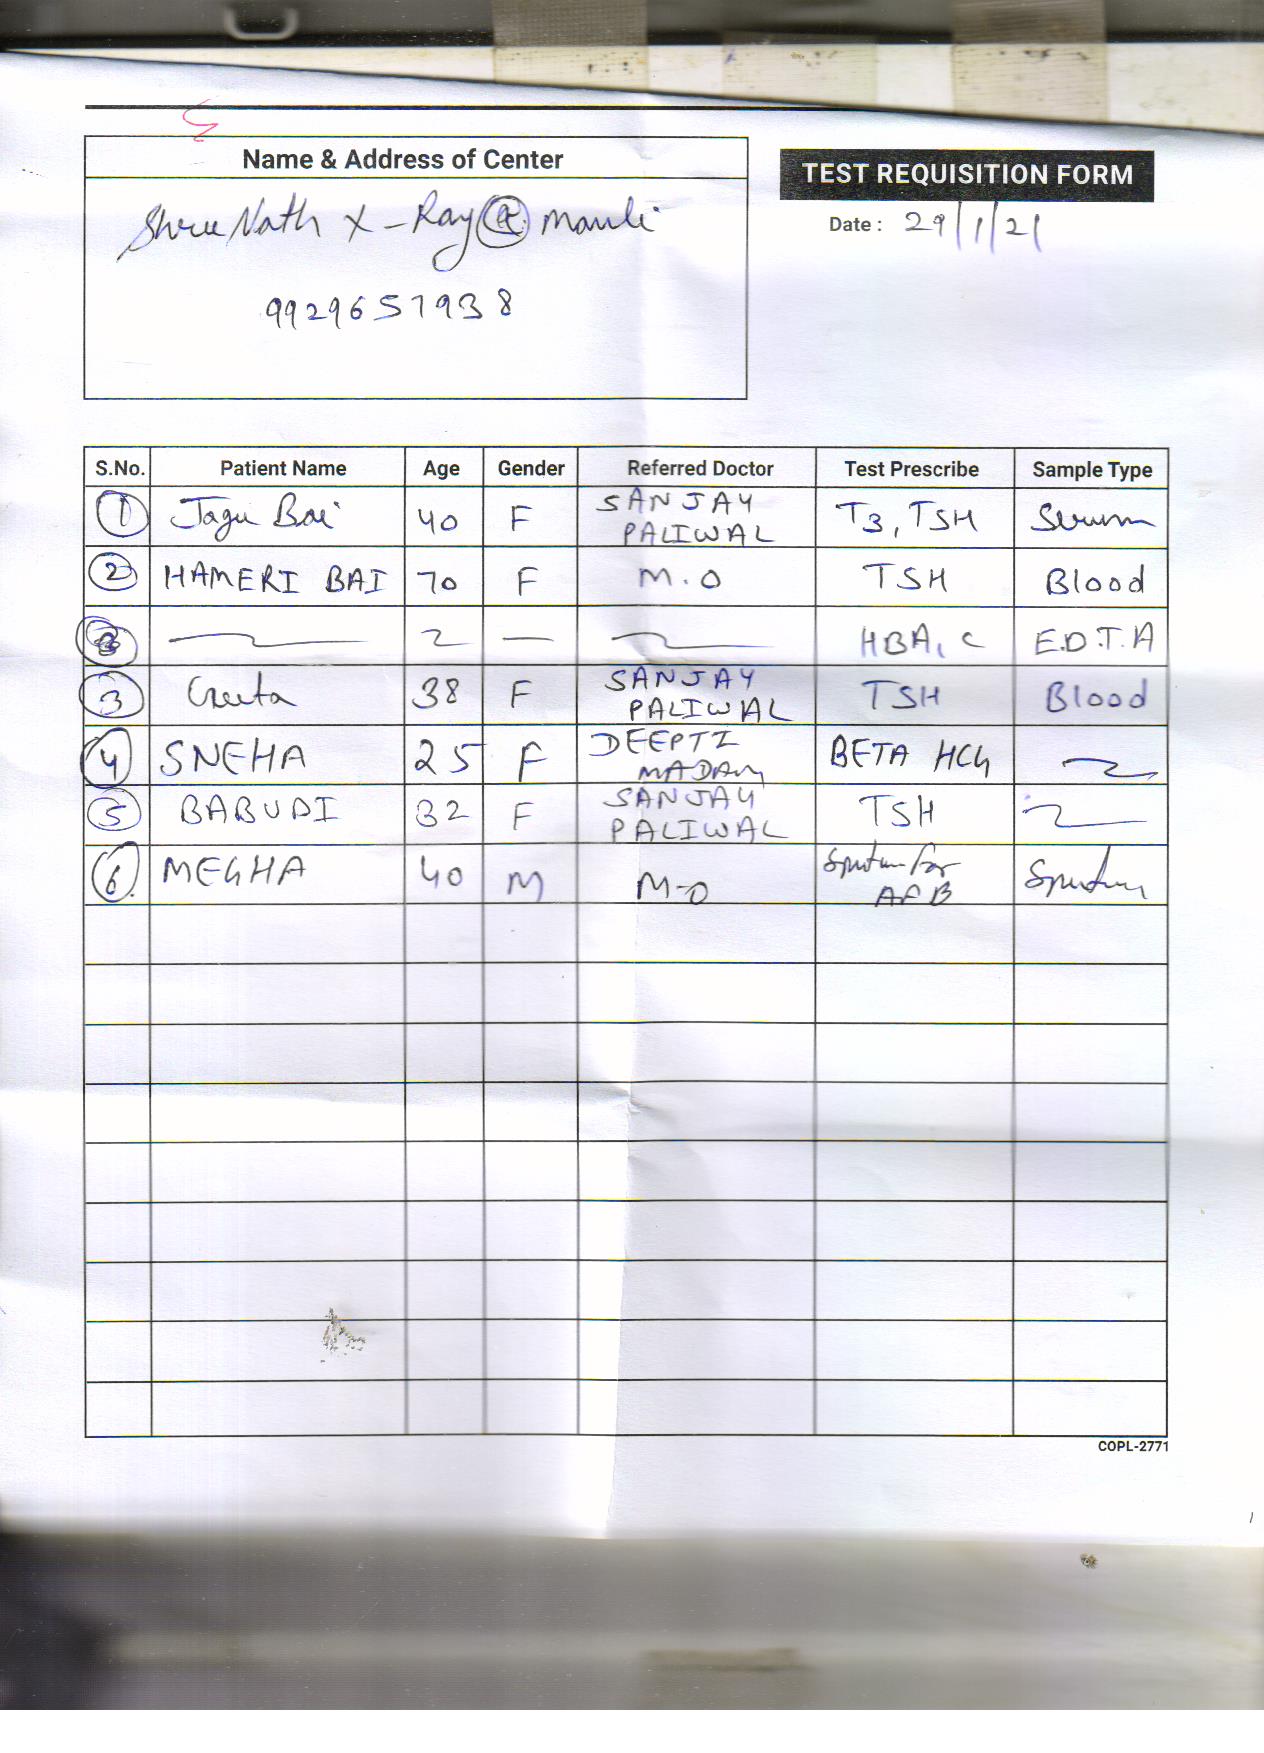 Name & Address of Center
Shree Nath X-Ray @ Mavli
9929651938
TEST REQUISITION FORM
Date : 29/1/21
S.No. Patient Name Age Gender Referred Doctor Test Prescribe Sample Type
1 Jagu Bai 40 F SANJAY PALIWAL T3, TSH Serum
2 HAMERI BAI 70 F M.O TSH Blood
HBA1C E.D.T.A
3 38 F SANJAY PALIWAL TSH Blood
4 SNEHA 25 F DEEPTI MADAM BETA HCG
5 BABUDI 32 F SANJAY PALIWAL TSH
6 MEGHA 40 M M-O Sputum for AFB Sputum
COPL-2771